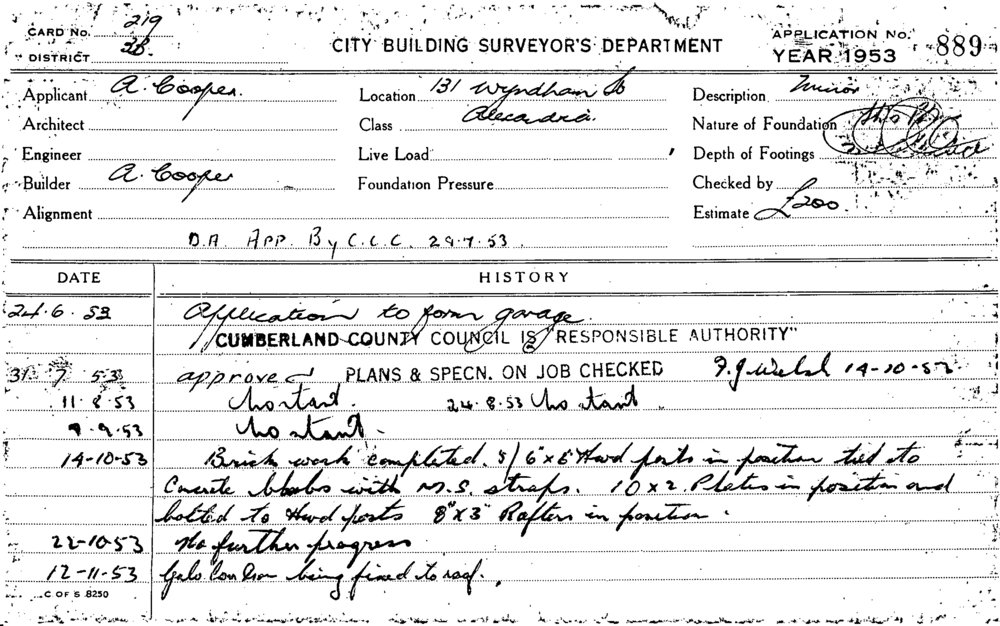 CARD No. 219
DISTRICT 2B.
CITY BUILDING SURVEYOR'S DEPARTMENT
APPLICATION No. 889
YEAR 1953
Applicant A. Cooper.
Location 131 Wyndham St
Description Minor
Architect
Class Alexandria.
Nature of Foundation
Engineer
Live Load
Depth of Footings
Builder A. Cooper
Foundation Pressure
Checked by
Alignment
Estimate £200.
D.A. APP. By C.C.C. 29.7.53.
DATE HISTORY
24.6.53 Application to form garage.
CUMBERLAND COUNTY COUNCIL IS "RESPONSIBLE AUTHORITY"
31 7 53 approved PLANS & SPECN. ON JOB CHECKED F.J. Welsh 14-10-53
11.8.53 No start. 24.8.53 No start.
9.9.53 No start.
14-10-53 Brick work completed. 5/ 6"x6" Hwd posts in position tied to
Concrete blobs with M.S. straps. 10x2 Plates in position and
bolted to Hwd posts 8"x3" Rafters in position.
22-10-53 No further progress
12-11-53 Galv being fixed to roof.
C OF S 8250